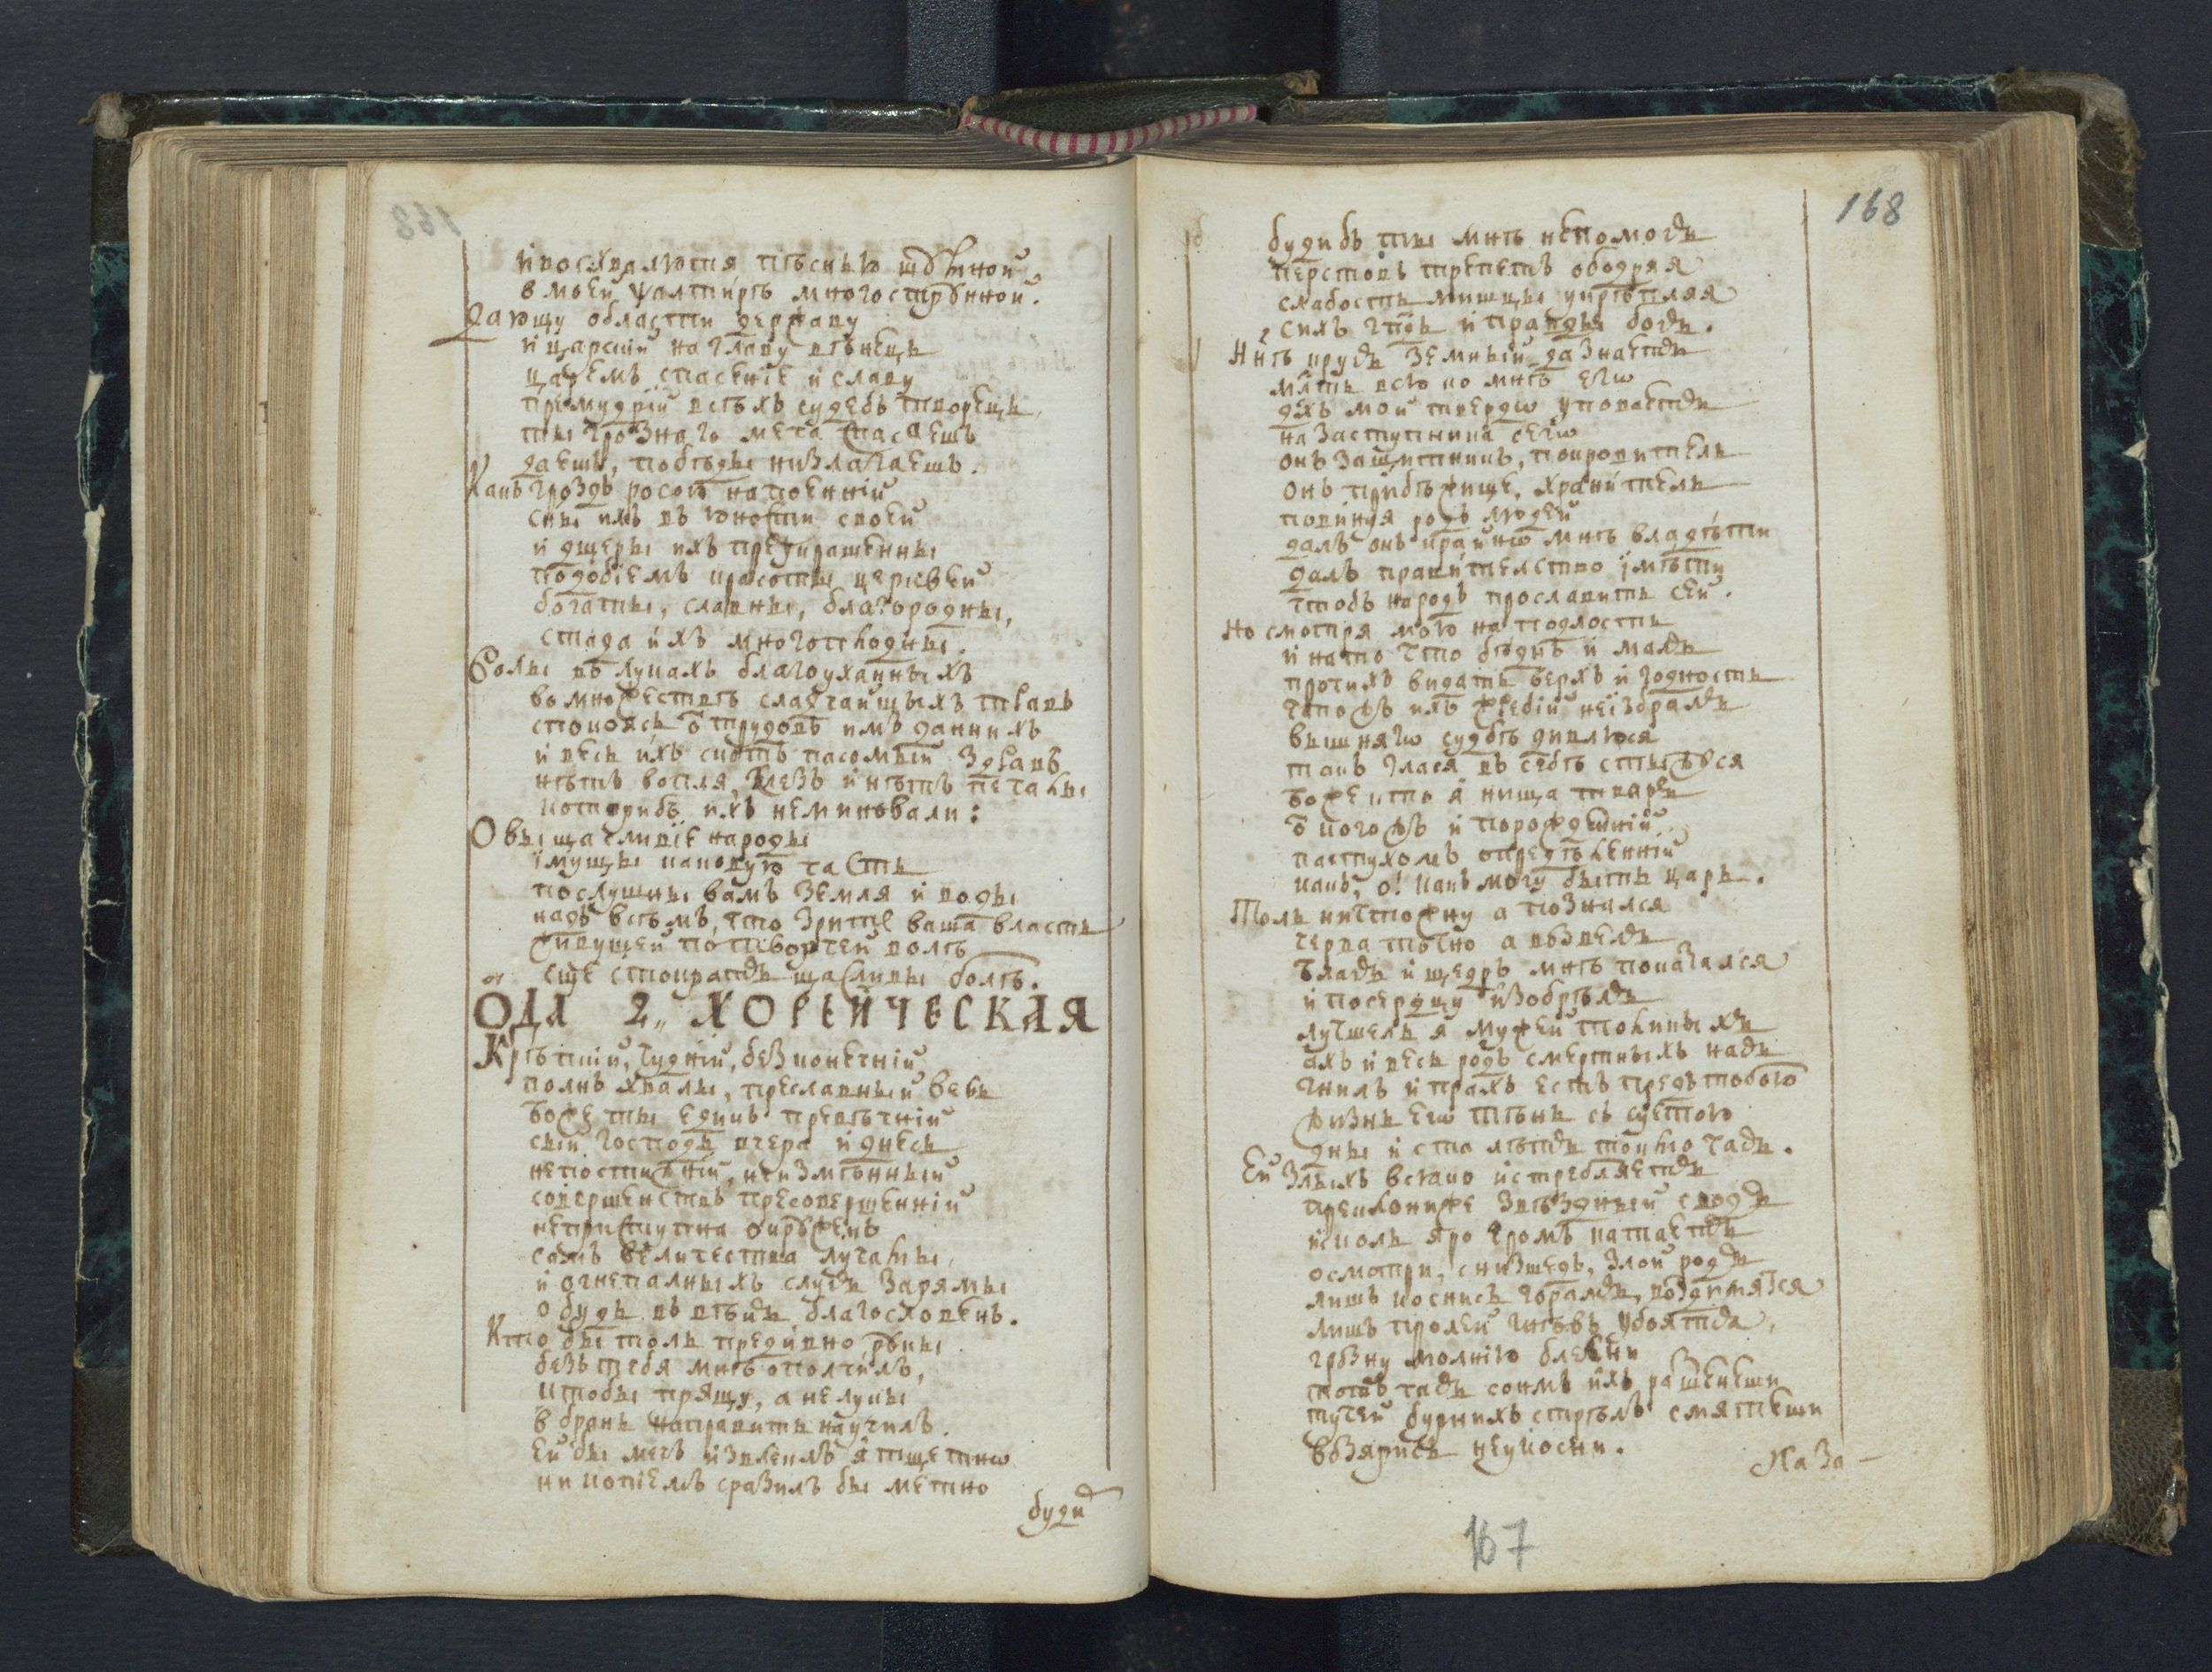 и восхвалютя пѣснью шꙋмной
в моей ѱалтирѣ многострꙋнной.
Дающу области державу
и царский на главу вѣнецъ
царемъ спасение и славу
премудрій всѣхъ судебъ творецъ
ты грознаго меча спасаешъ
даешъ, побѣды низлагаешъ.
Какъ гроздъ росою напоенній
сны ихъ въ юности своей
и дщеры ихъ преукрашенны
подобіемъ красоты церквей
богаты, славны, благородны,
стада ихъ многоплодны.
Волы въ лукахъ благоуханныхъ
во множествѣ сладчайшыхъ травъ
спокоясь ѿ трудовъ имъ данныхъ
и весь ихъ скотъ пасомый здравъ
нѣтъ вопля, слезъ и нѣтъ печалы
которыбъ ихъ неминовали:
О вы щасливіе народы
імущы каковую часть
послушны вамъ земля и воды
надъ всѣмъ, что зрите ваша власть
живущей по творчей волѣ
еще стократъ щасливы болѣ.
ОДА 2,, ХОРЕЙЧЕСКАЯ
Крѣпкій, чудній, безконечній
полнъ хвалы, преславный весь
боже ты единъ превѣчній
сый господь вчера и днесь
непостижній, неизмѣнный
совершенствъ пресовершенній
непристпупна окрꙋженъ
самъ величества лучамы
и огнепалныхъ слугъ зарямы
о будь въ вѣкъ благословенъ.
Кто бы толь предивно рꙋкы
безъ тебя мнѣ ополчилъ,
ктобы пращу, а не лукы
в брань направить научилъ.
ей бы мечъ извлеклъ я тщетнѡ
ни копіемъ сразилъ бы метно
буди
168
будибъ ты мнѣ непомогъ
перстовъ трепетъ ободряя
слабость мишцы укрѣпляя
силъ гпдь и правды богъ.
Ннѣ кругъ земный да знаетъ
млть всю ко мнѣ егѡ
дхъ мой твердѡ уповаетъ
на заступника сегѡ
онъ защитникъ, покровитель
онъ прибѣжище, хранитель
повинуя родъ людей
далъ онъ крайнѡ мнѣ владѣти
далъ правителство імѣти
чтобъ народъ прославить сей.
Но смотря мою на подлость
и нато что бѣднъ и малъ
прочихъ видать верхъ и годность
чтожъ ихъ жребій неізбралъ
вышнягѡ судбѣ дивлюся
такъ глася въ себѣ стыжꙋся
боже кто я нища тварь
ѿ когожъ и порожденній
пастухомъ опредѣленній
какъ, о! какъ могу быть царь.
Толь ничтожну а познался
черва точно а возвелъ
благъ и щедръ мнѣ показался
и посердцу изобрѣлъ
лучшель я мужей толикихъ
ахъ и весь родъ смертныхъ надъ
гнилъ и прахъ есть предъ тобою
жизнь егѡ тѣнь съ суетою
дны и сто лѣтъ токмо чадъ.
Ей злыхъ всяко истребляетъ
преклониже звѣздный сводъ
исколь яро громъ катаетъ
осмотри, снизшедъ, злой родъ
лишъ коснись горамъ, воздимятся
лишъ пролей гнѣвъ убоятца,
грозну молнію блесни
тотъ часъ сонмъ ихъ разженеши
тучей бурнихъ стрѣлъ смятеши
возярись неукосни.
На за-
167